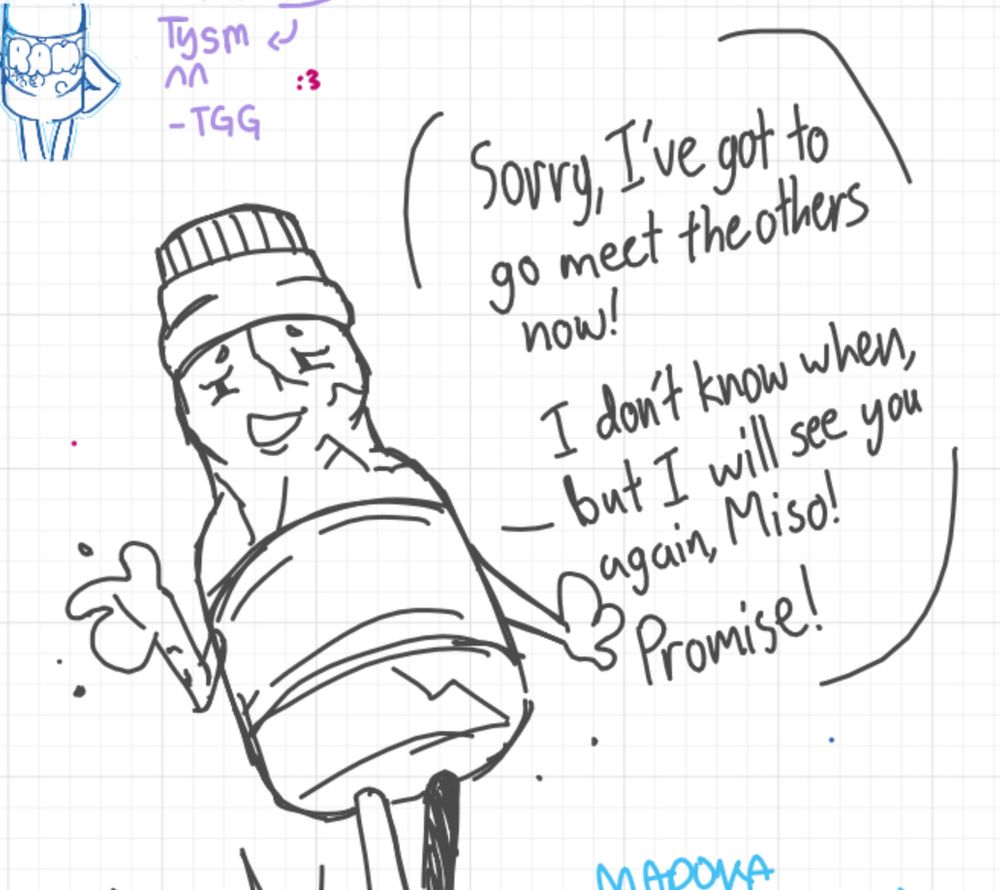 Tysm
^^
:3
-TGG
Sorry, I've got to
go meet the others
now!
I don't know when,
but I will see you
again, Miso!
Promise!
MADOKA